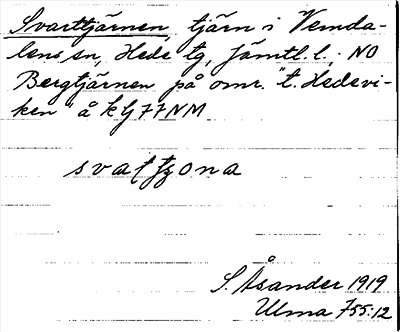 Svarttjärnen, tjärn i Vemda-
lens sn, Hede tg, Jämtl. l.; NO
Bergtjärnen på omr. "t. Hedevi-
ken" å k bj 77 NM
svattzona
S. Åsander 1919
Ulma 755:12